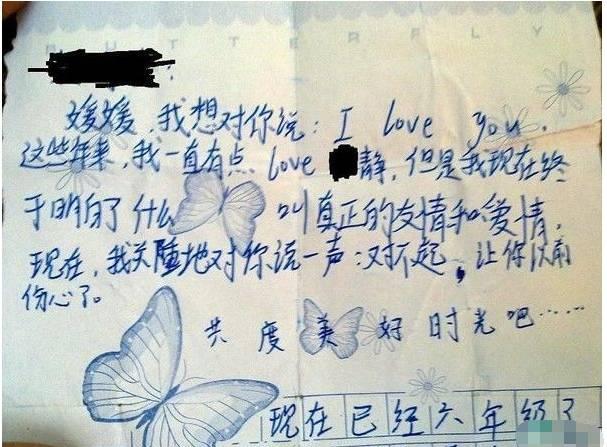 BUTTERFLY
媛媛，我想对你说：I love you.
这些年来，我一直有点 love 静，但是我现在终
于明白了什么叫真正的友情和爱情，
现在，我关腄地对你说一声：对不起，让你以前
伤心了。
共度美好时光吧……
现在已经六年级了